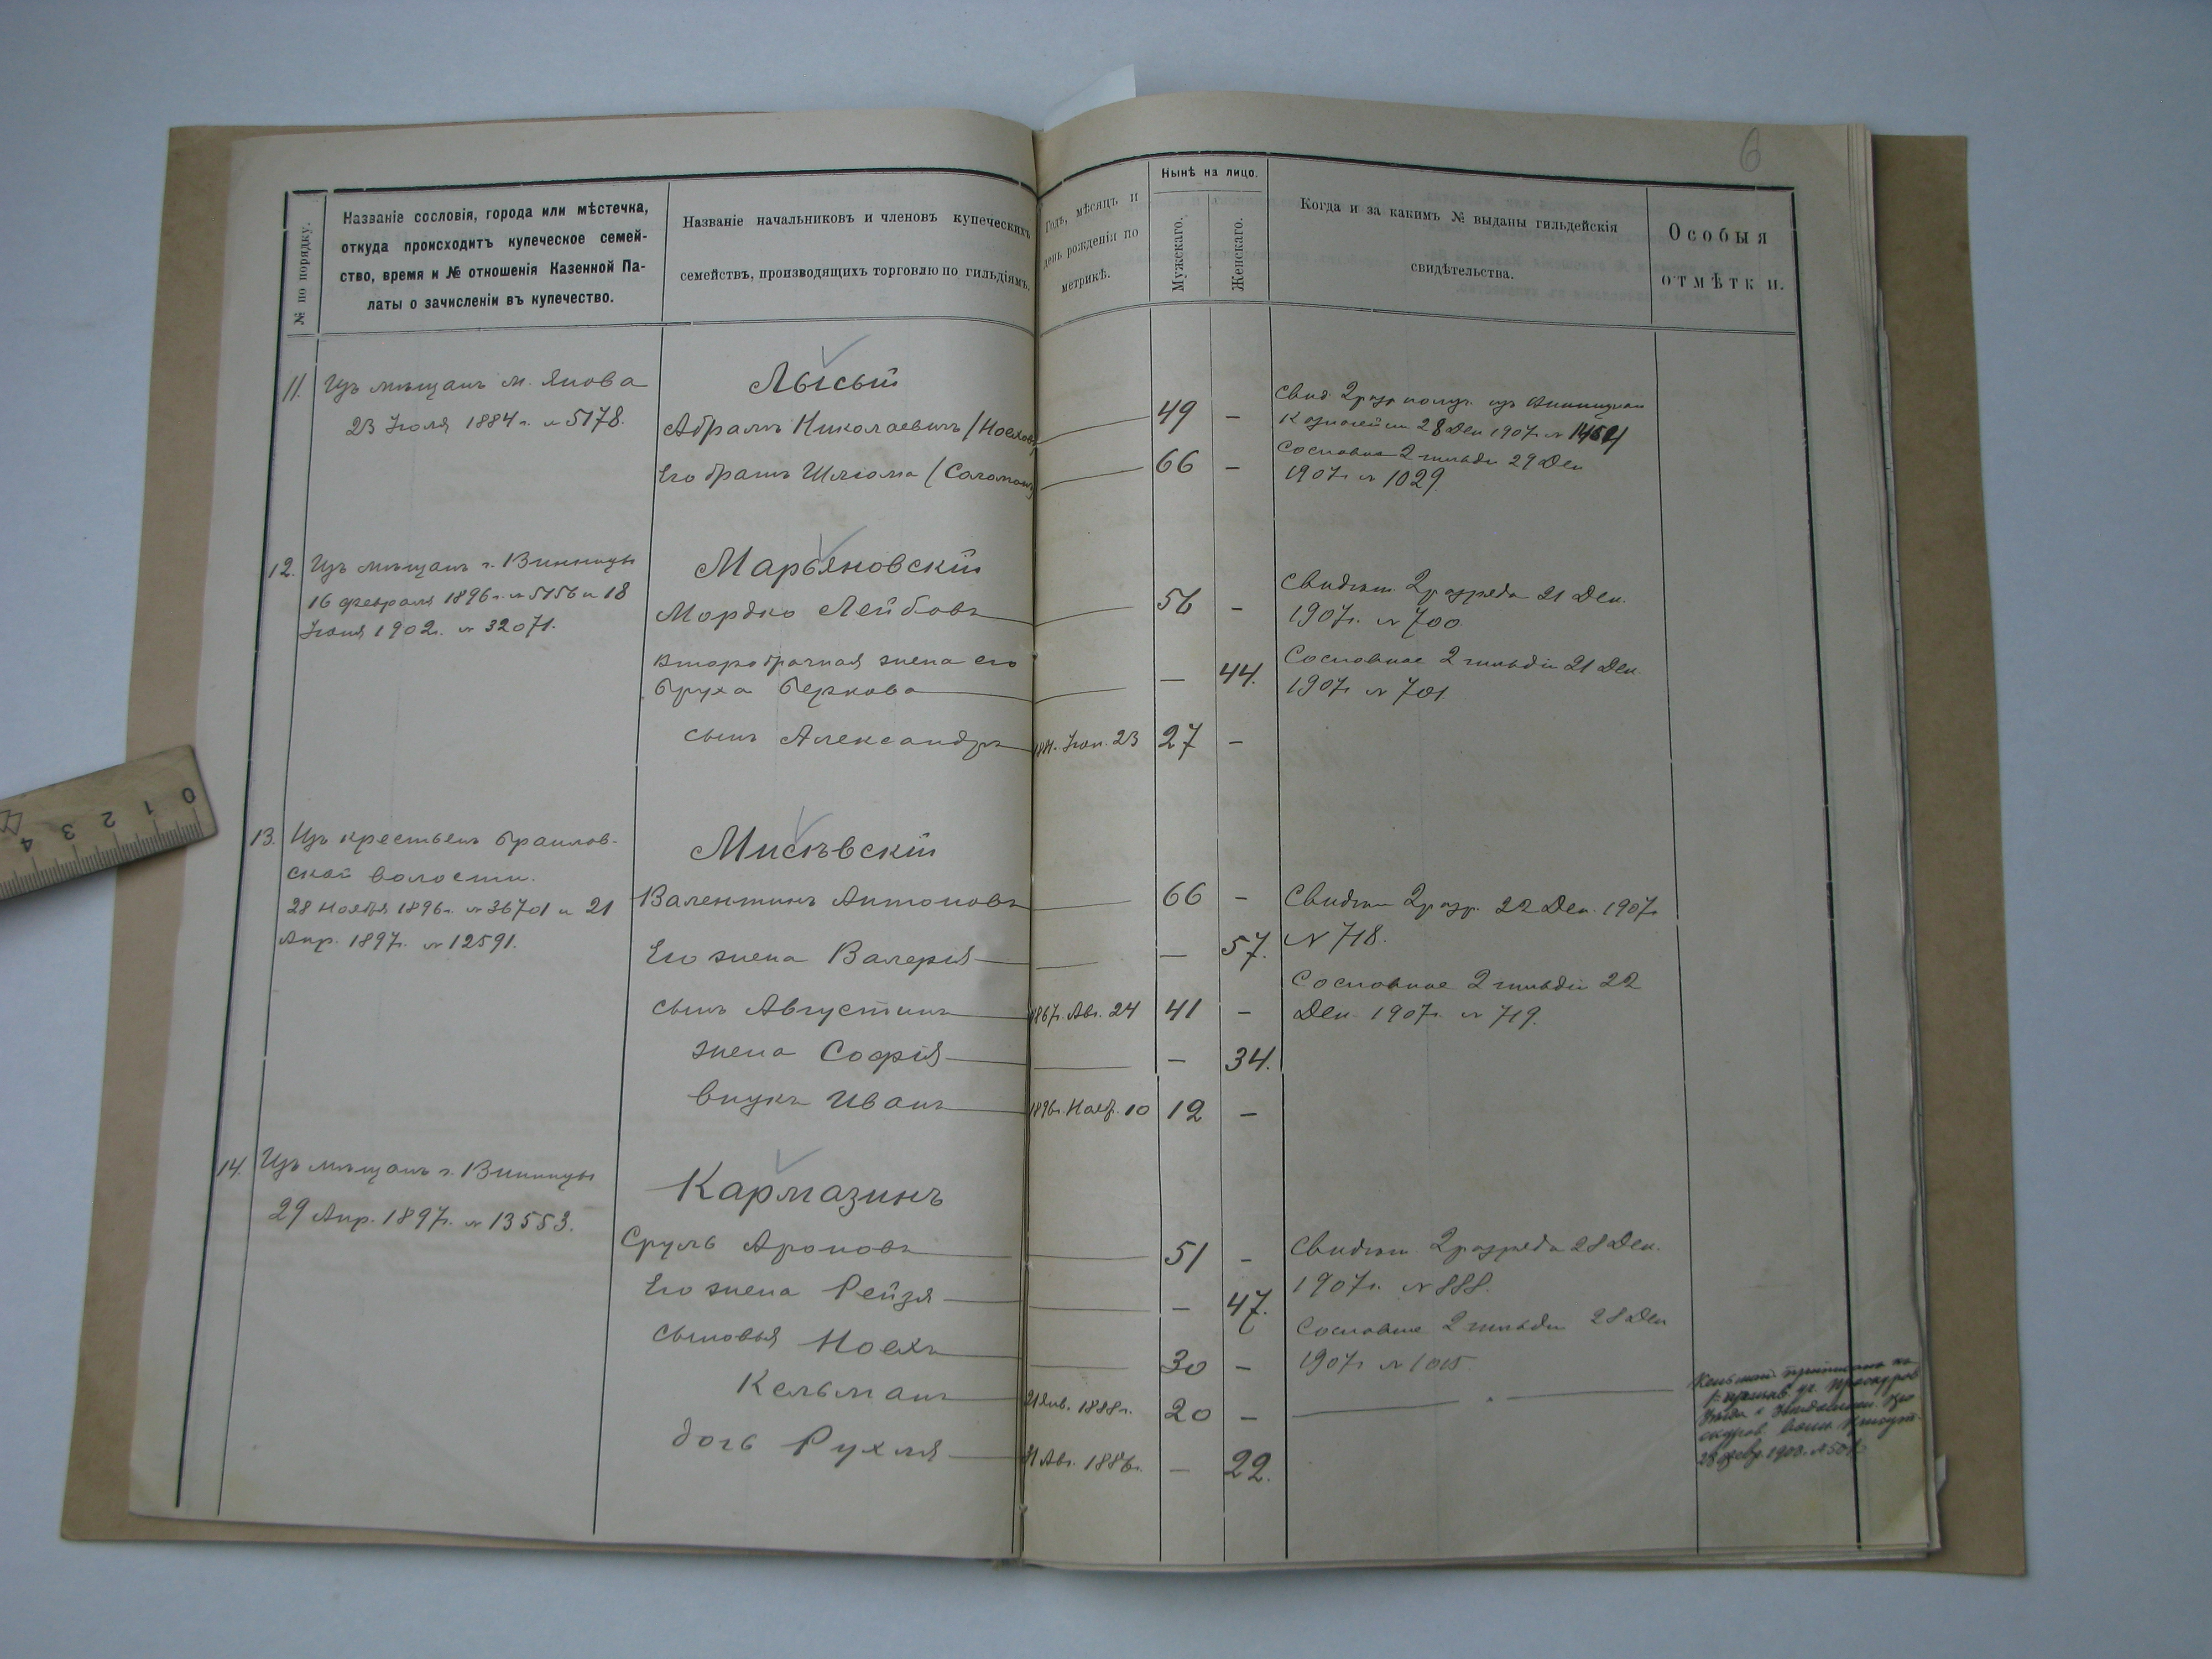 6
№ по порядку.
Названіе сословія, города или мѣстечка,
откуда происходитъ купеческое семей-
ство, время и № отношенія Казенной Па-
латы о зачисленіи въ купечество.
Названіе начальниковъ и членовъ купеческихъ
семействъ, производящихъ торговлю по гильдіямъ.
Годъ, мѣсяцъ и
день рожденія по
метрикѣ.
Нынѣ на лицо.
Мужскаго.
Женскаго.
Когда и за какимъ № выданы гильдейскія
свидѣтельства.
Особыя
отмѣтки.
11. Изъ мѣщанъ м. Янова
23 Іюля 1884 г. № 5178.
Лысый
Абрамъ Николаевичъ
49 –
Его братъ Шлiома
66 –
Свид. 2 разр
28 Дек 1907 г №
Сословное 2 гильдіи 29 Дек
1907 г № 1029.
12. Изъ мѣщанъ г. Винницы
16 февраля 1896 г. № 5156 и 18
1902 г. № 32071.
Марьяновскій
Мордко Лейбовъ
56 –
второбрачная жена его
Бруха Беркова
– 44.
сынъ Александръ
23 27 –
Свидѣт. 2 разряда 21 Дек.
1907 г. № 700.
Сословное 2 гильдіи 21 Дек.
1907 г № 701.
13. Изъ крестьянъ Браилов-
ской волости.
28 Ноября 1896 г. № 36701 и 21
Апр. 1897 г. № 12591.
Мисѣвскій
Валентинъ Антоновъ
66 –
Его жена Валерія
– 57.
сынъ Августинъ
1867 г. Авг. 24 41 –
жена Софія
– 34.
внукъ Иванъ
1896 г. Нояб. 10 12 –
Свидѣт 2 разр. 22 Дек. 1907 г
№ 718.
Сословное 2 гильдіи 22
Дек. 1907 г № 719.
14. Изъ мѣщанъ г. Винницы
29 Апр. 1897 г. № 13553.
Кармазинъ
Сруль Ароновъ
51 –
Его жена Рейзя
– 47.
сыновья Моехъ
30 –
Кельманъ
21 Янв. 1888 г. 20 –
дочь Рухля
Авг. 1886 г. – 22.
Свидѣт. 2 разряда 28 Дек.
1907 г. № 888.
Сословное 2 гильдіи 28 Дек
1907 г № 1015.
0 1 2 3 4